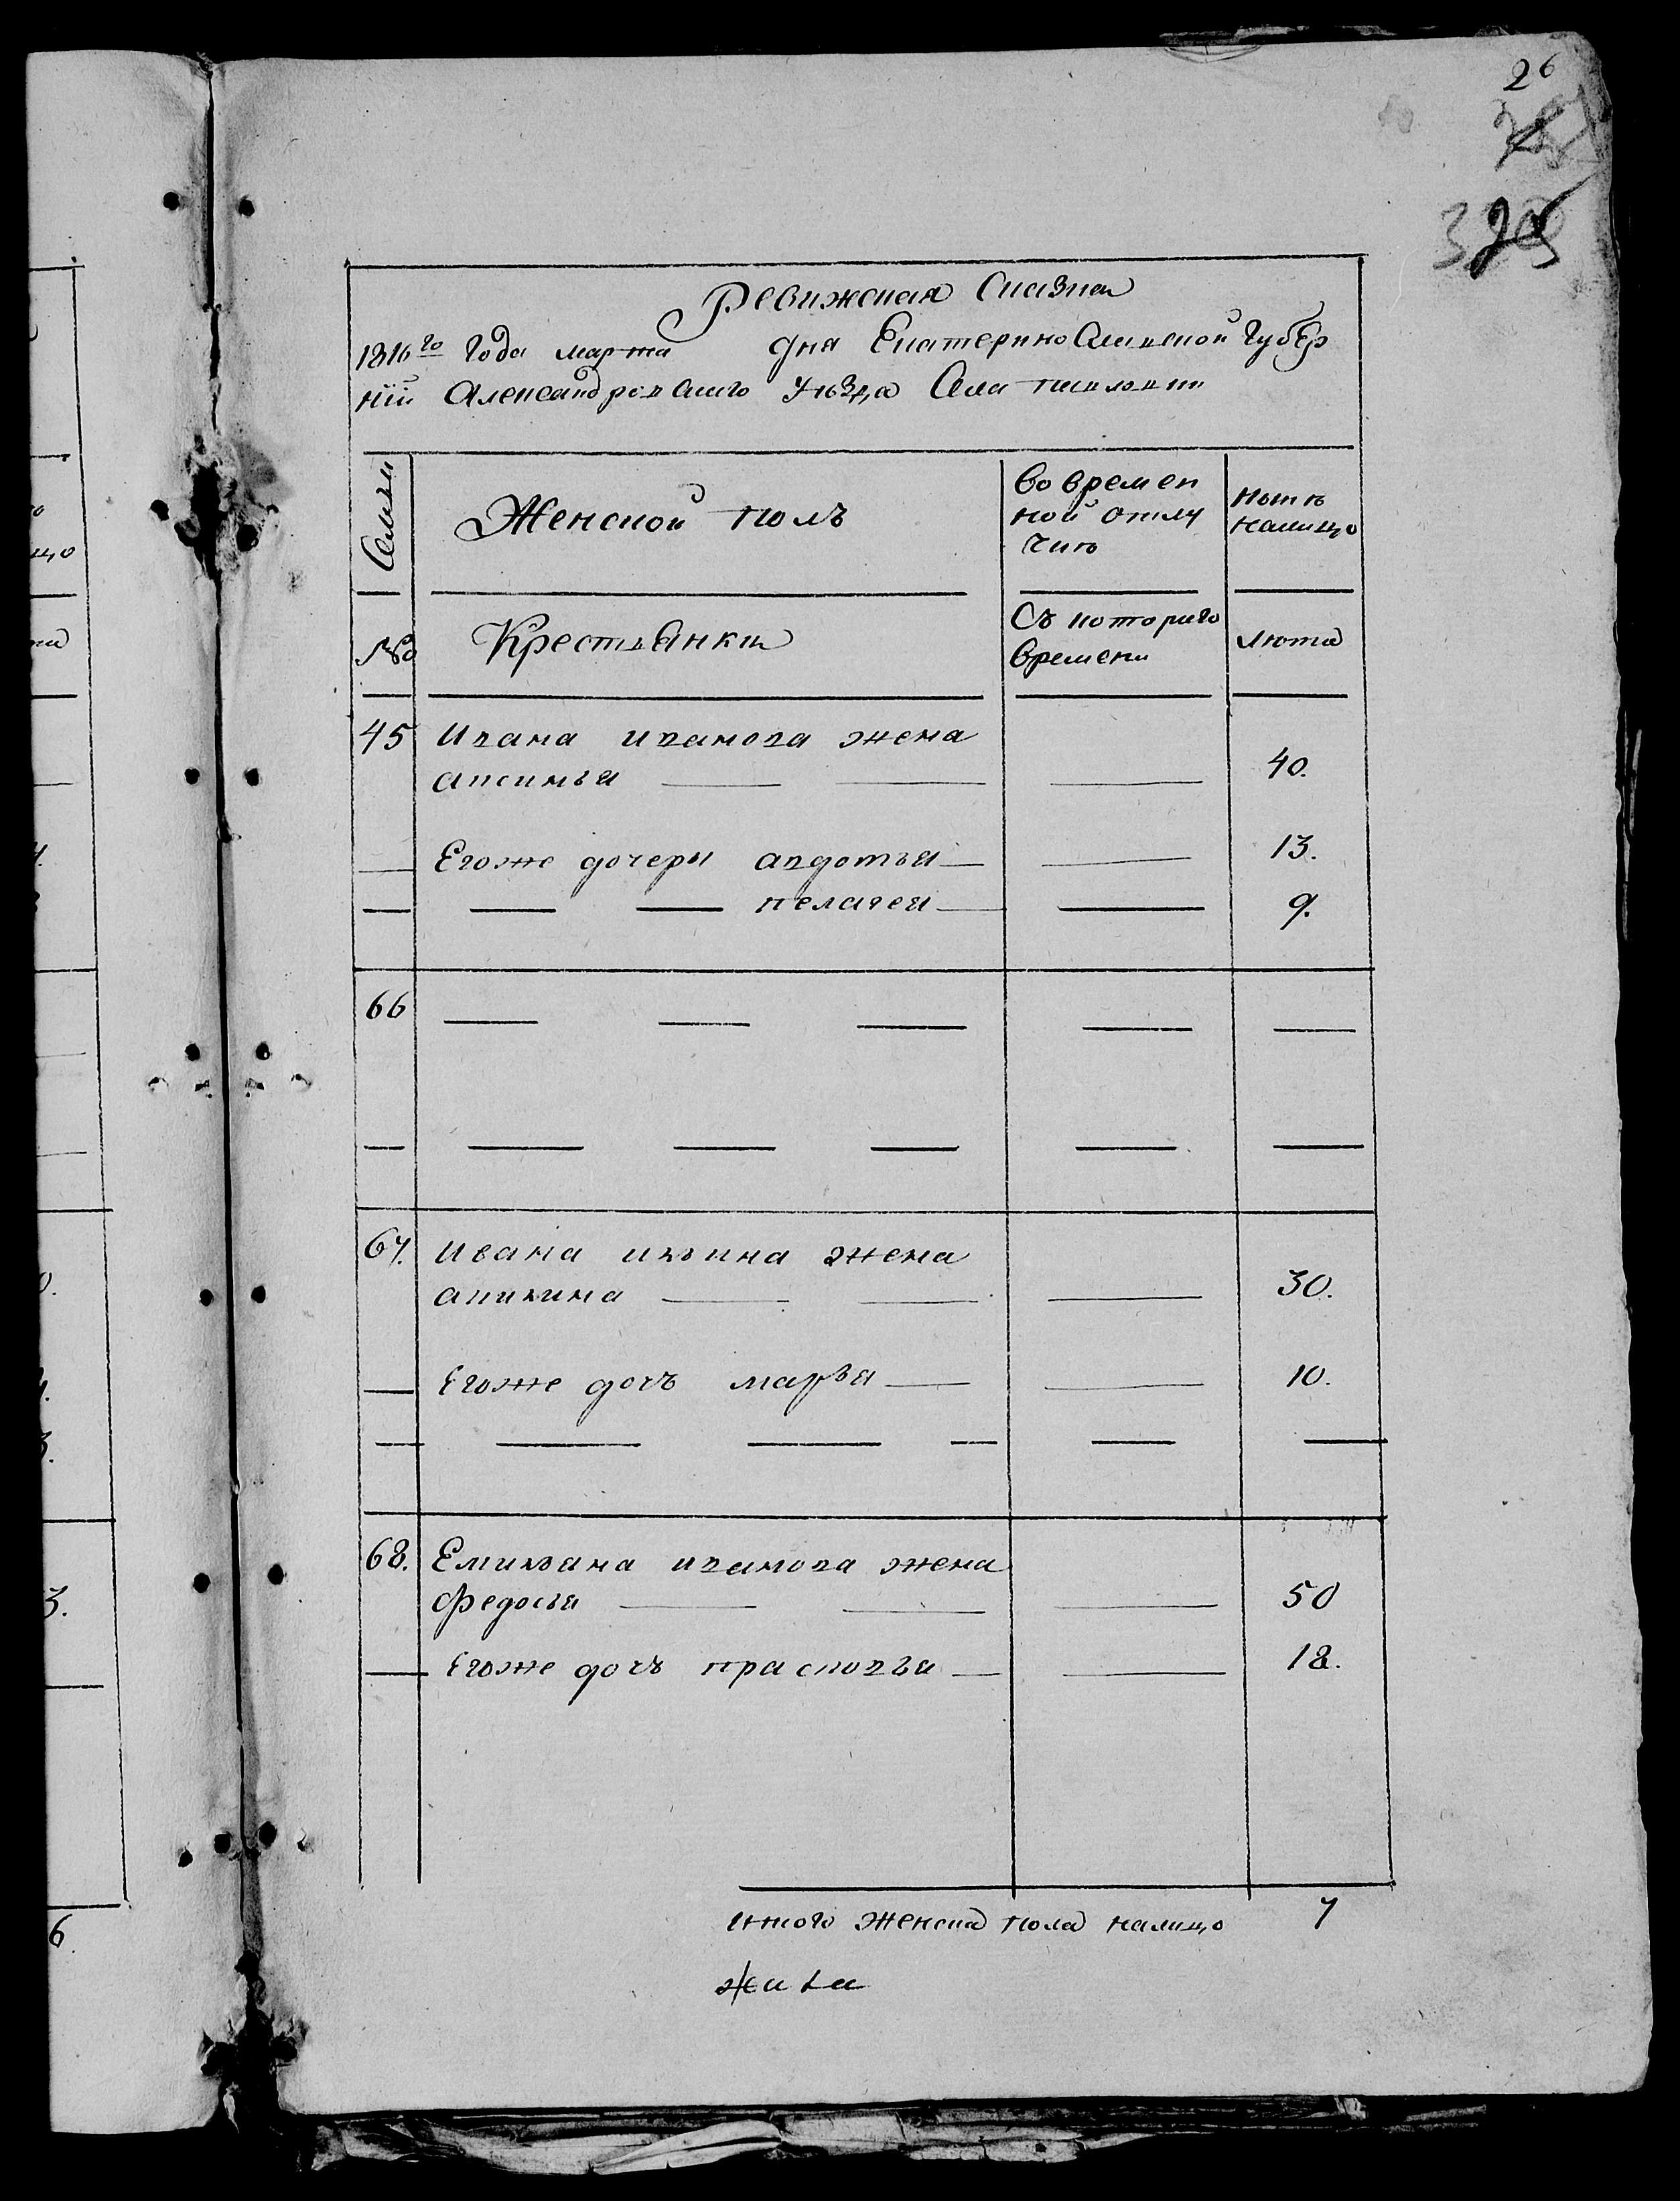 26
Ревижская Сказка
1816го Года марта дня Екатеринославской Губер
нїи Александровскаго Уезда Села
Семьи
Женской полъ
во времен
ной отлу
чке
ныне
налицо
№
Крестьянки
Съ котораго
времени
лета
45 Ивана иванова жена
аксинья 40.
Егоже дочери авдотья 13.
пелагея 9.
66
67. Ивана ильина жена
акилина 30.
Егоже дочь марья 10.
68. Емильяна иванова жена
федосья 50
Егоже дочь прасковья 18.
итого женска пола налицо 7